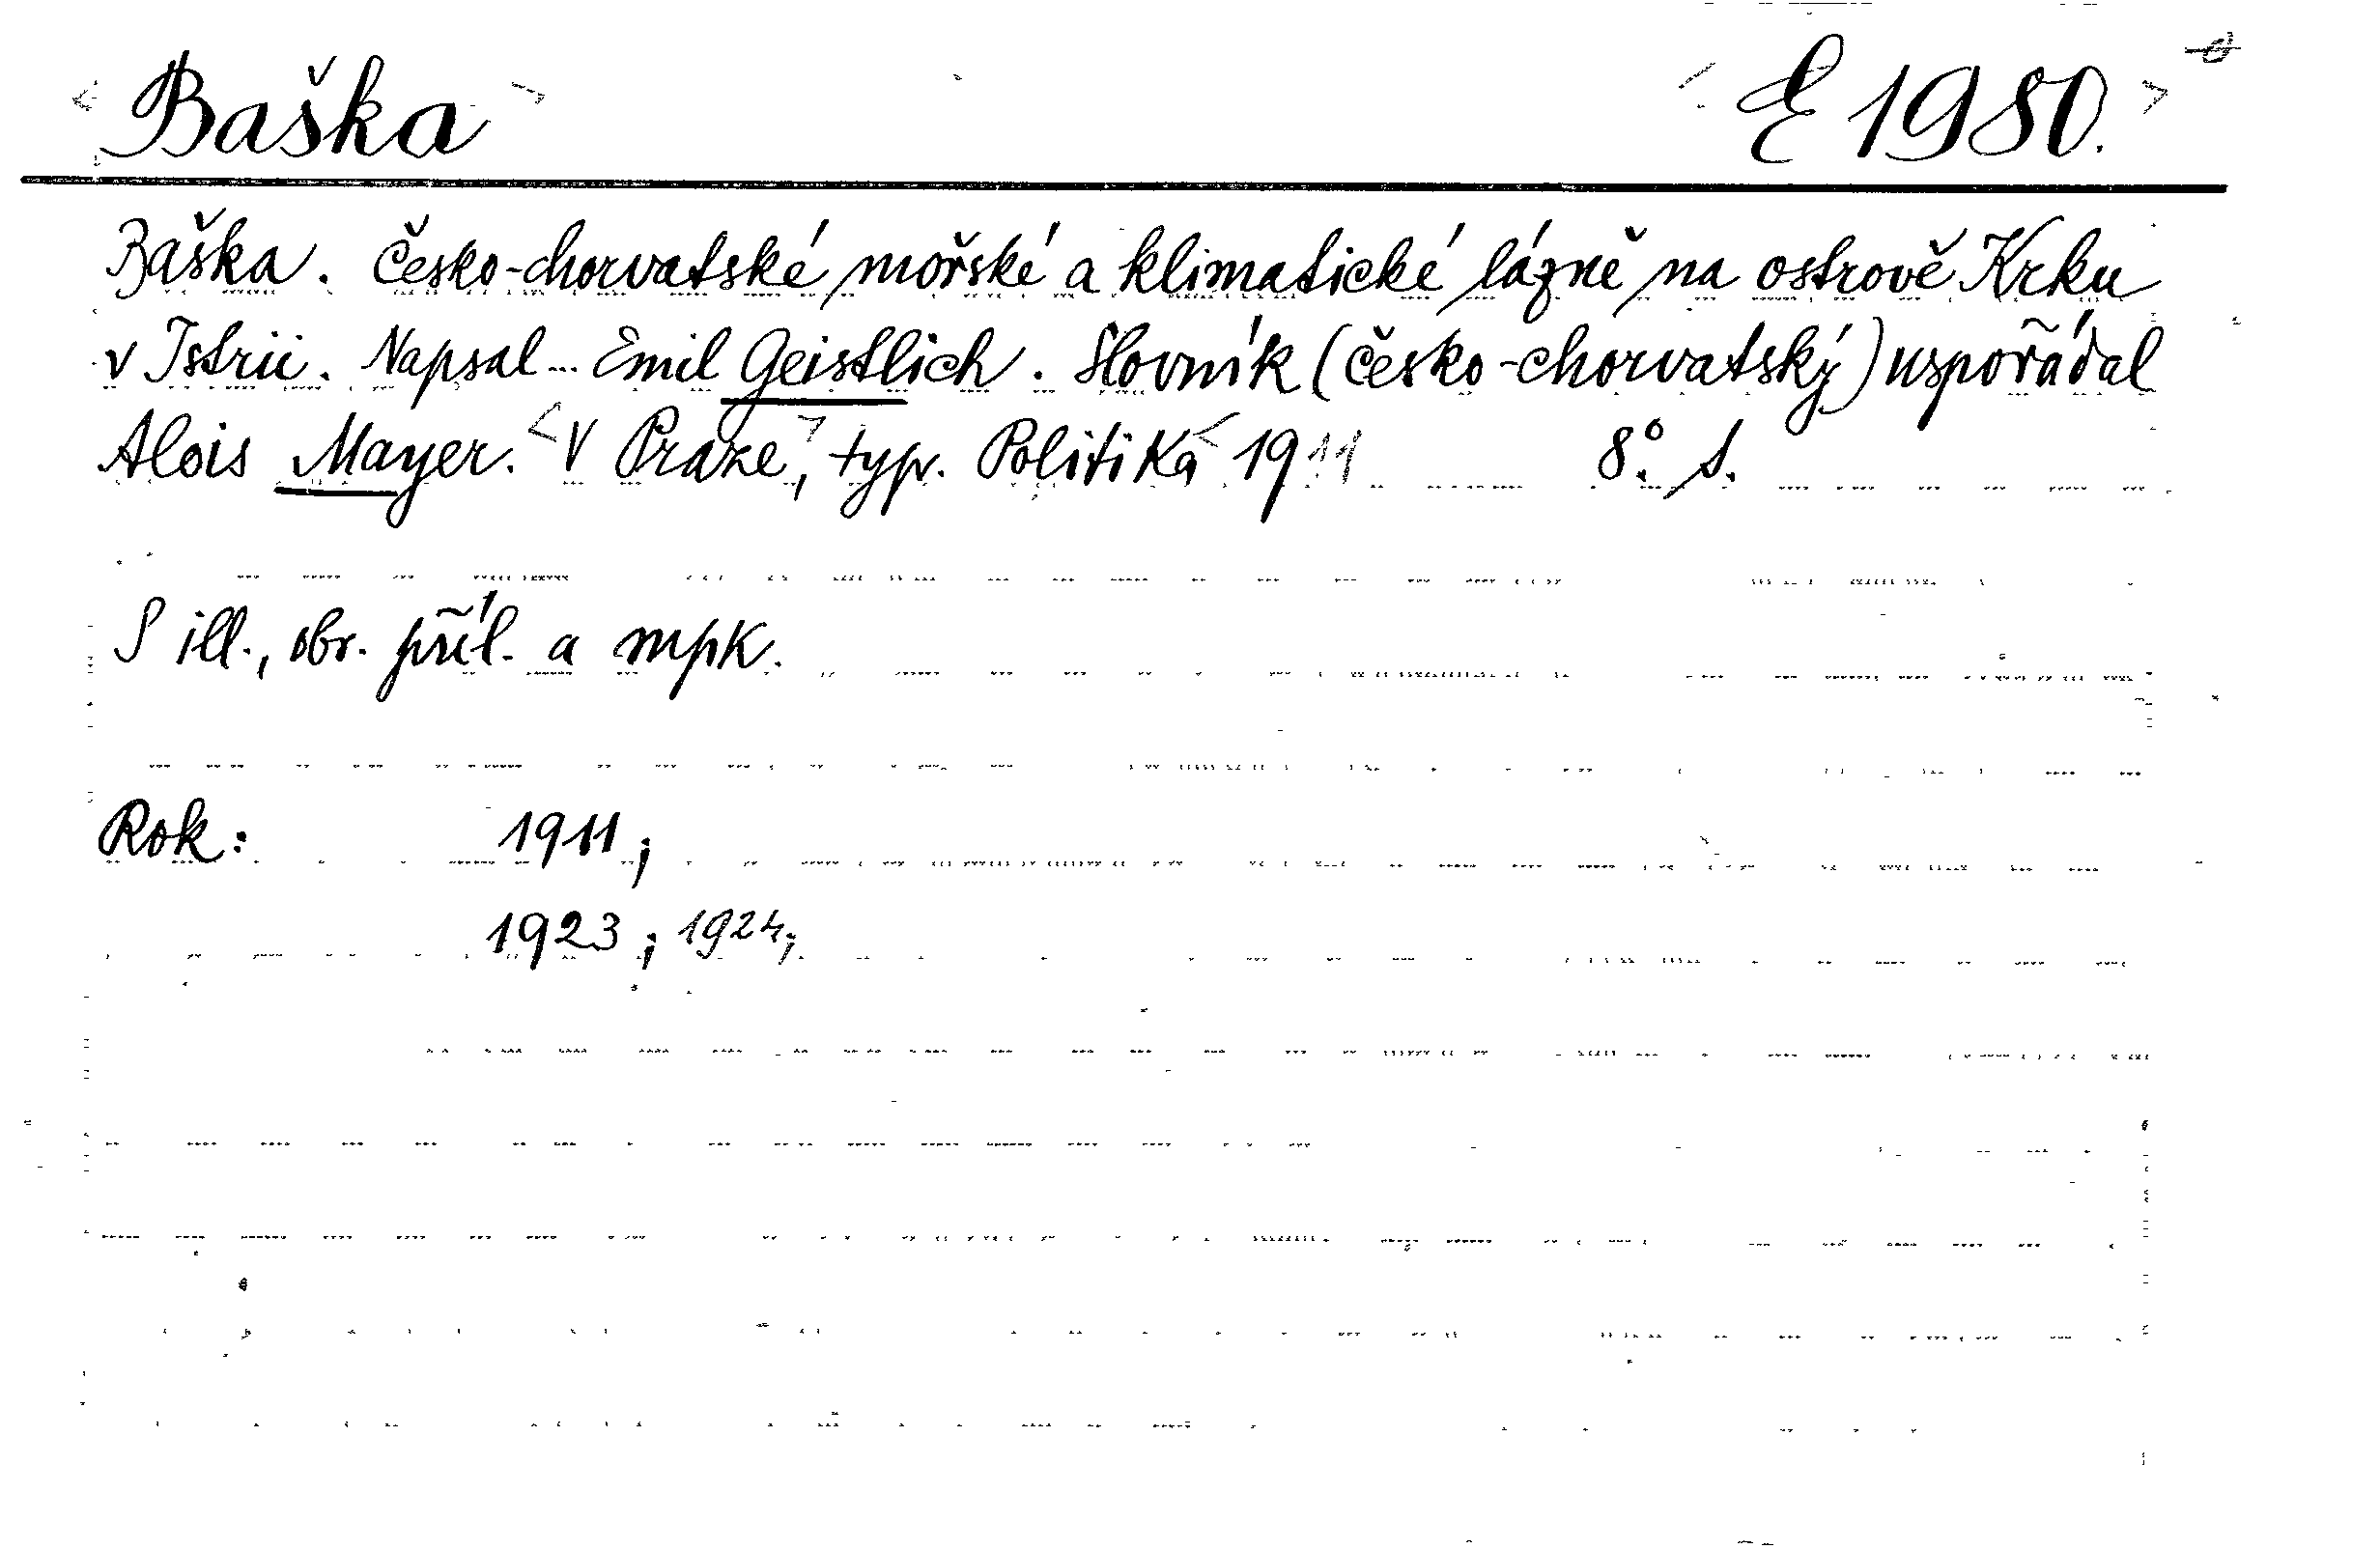 Baška E 1980.
Baška. Česko-chorvatské mořské a klimatické lázně na ostrově Krku
v Istrii. Napsal... Emil Geistlich. Slovník (česko-chorvatský) uspořádal
Alois Mayer. <V Praze>, typ. Politiká 1911 8°. S.
S ill., obr. příl. a mpk.
Rok: 1911;
1923; 1924;